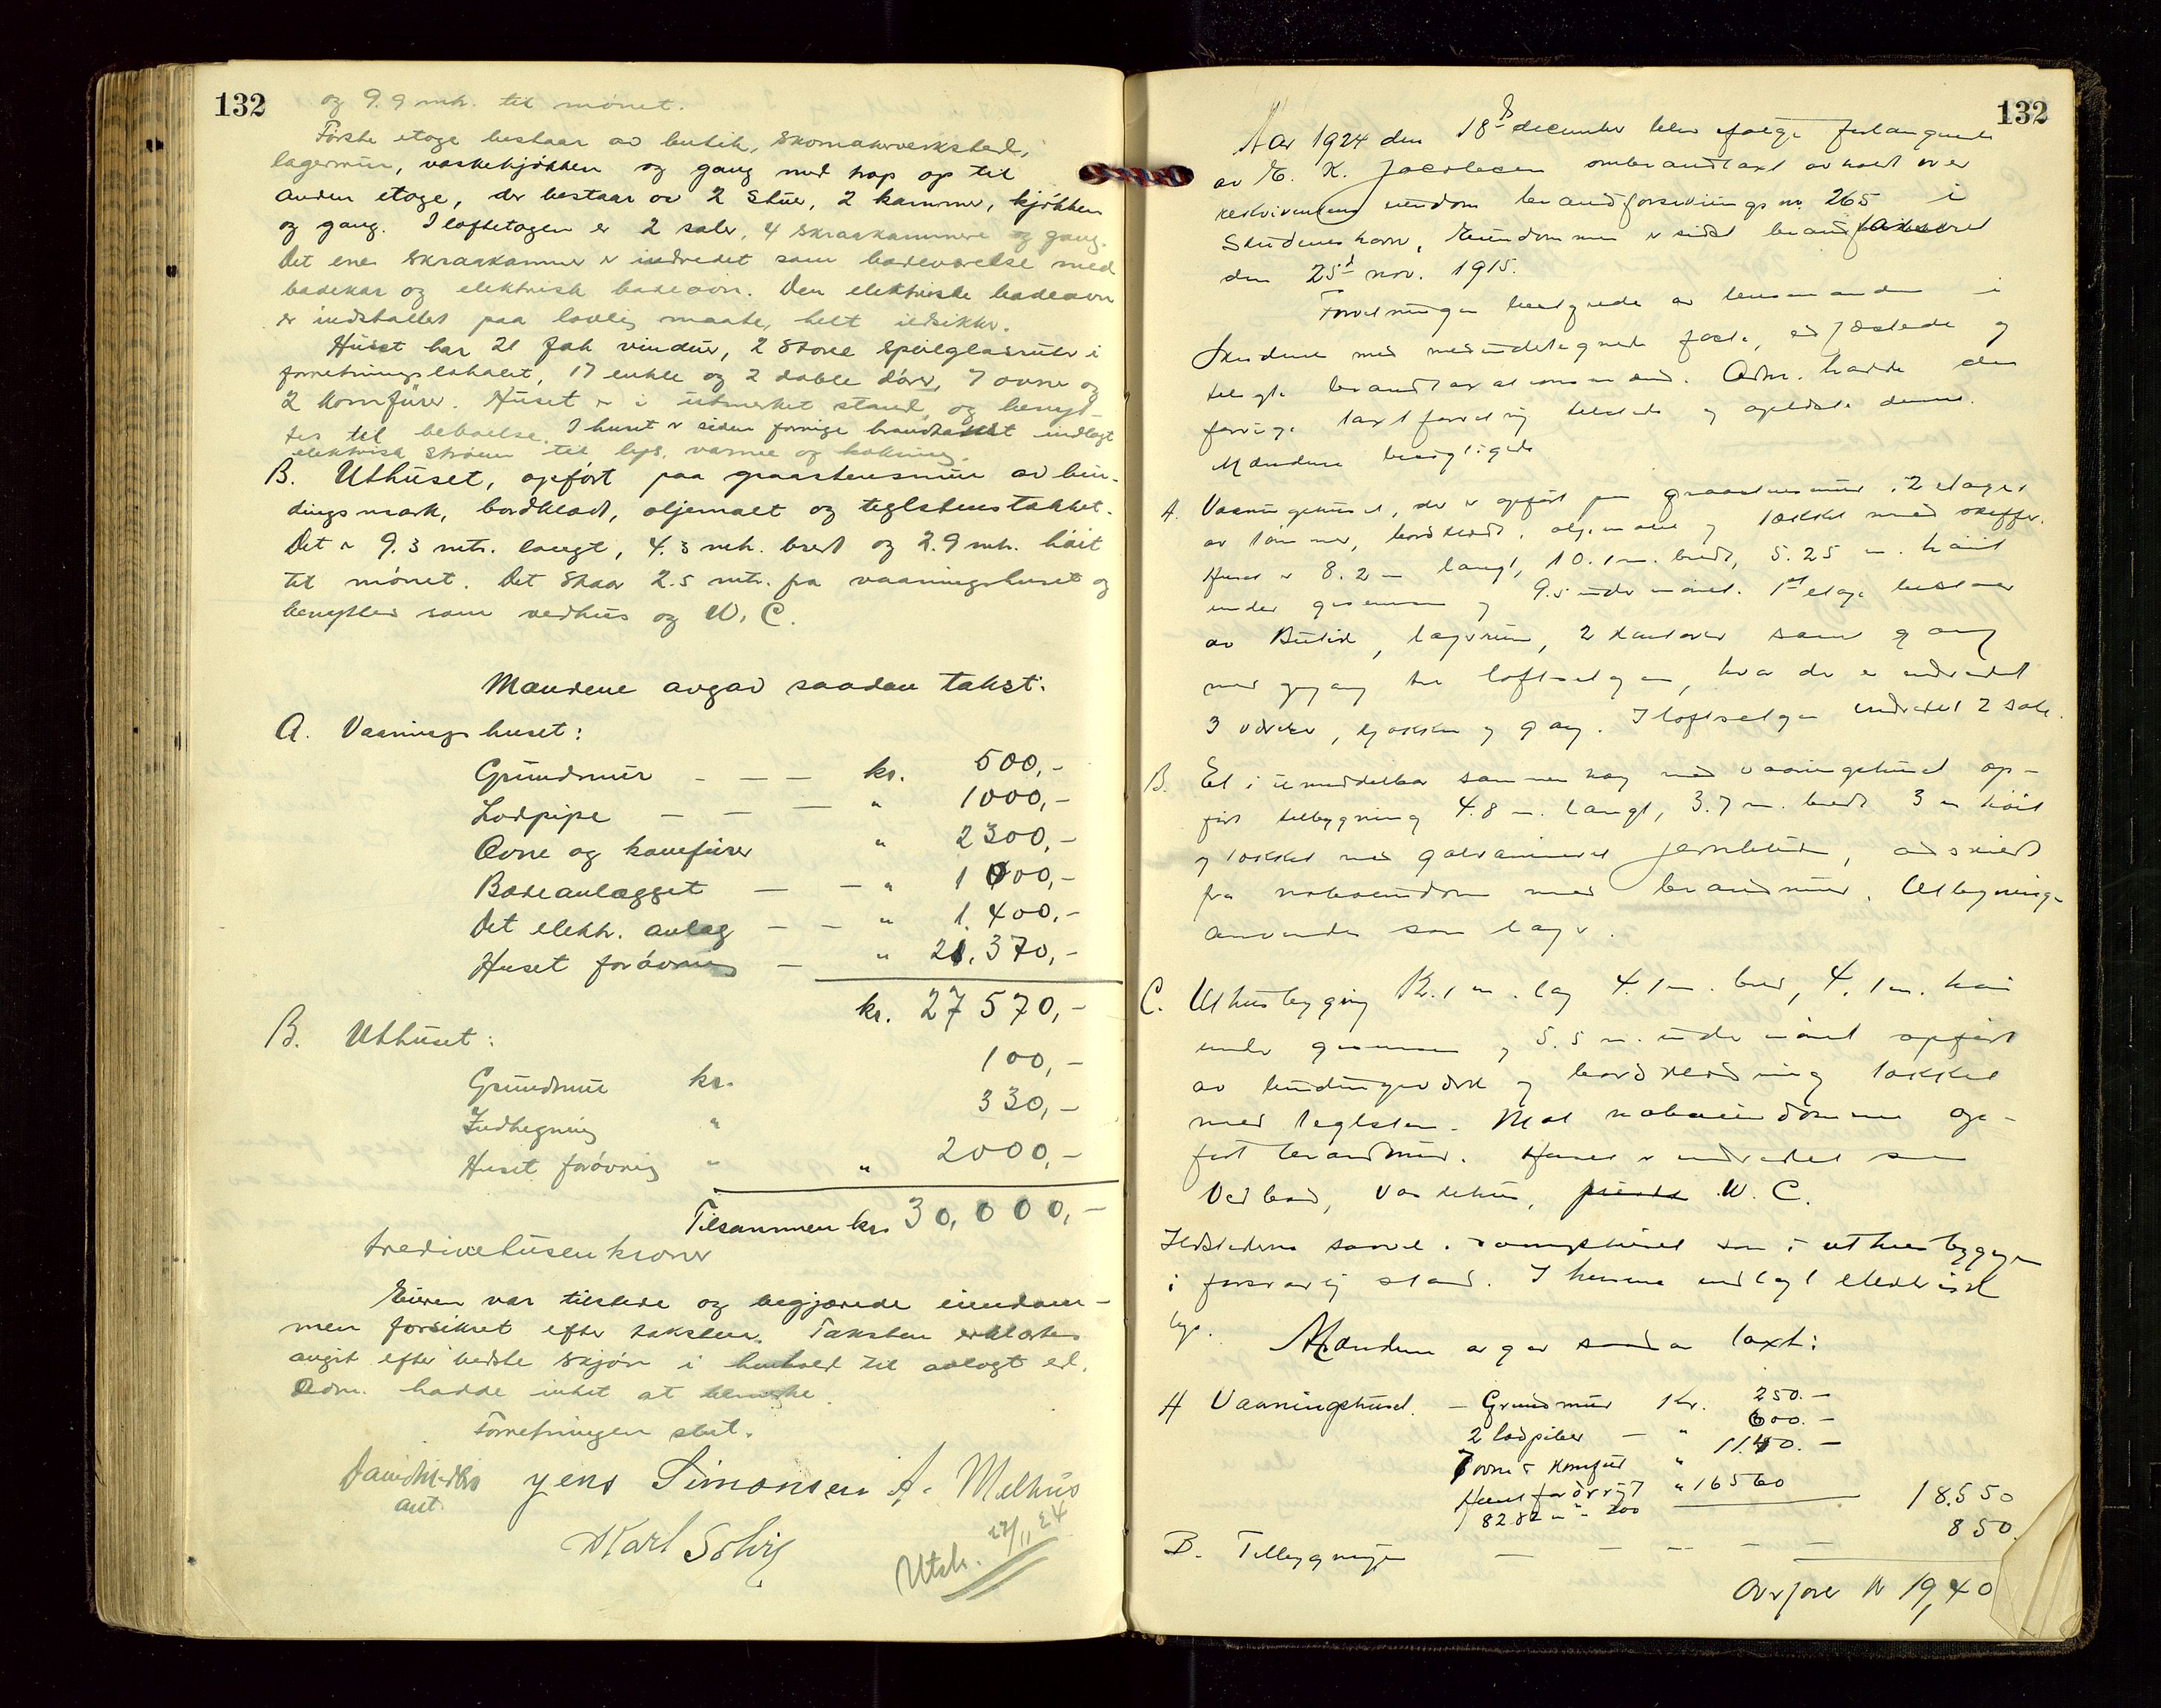 132
og 9.9 mtr. til mønet.
Første etage bestaar av butik, skomakerverksted,
lagerrum, vaskekjøkken og gang med trap op til
anden etage, der bestaar av 2 stuer, 2 kammer, kjøkken
og gang. I loftetagen er 2 saler, 4 skraakammere og gang.
Det ene skraakammer er indredet som badeværelse med
badekar og elektrisk badeovn. Den elektriske badeovn
er indstallert paa lovlig maate, helt ildsikker.
Huset har 21 fak vinduer, 2 store speilglasruter i
forretningslokalet, 17 enkle og 2 doble dører, 7 ovne og
2 komfürer. Huset er i utmerket stand og benyt-
tes til beboelse. I huset er siden forrige brandtakst indlagt
elektrisk strøm til lys, varme og kokning.
B. Uthuset, opført paa graastensmur av bin-
dingsverk, bordklædt, oljemalt og teglstenstækket.
Det er 9.3 mtr. langt, 4.3 mtr. bredt og 2.9 mtr. høit
til mønet. Det staar 2.5 mtr. fra vaaningshuset og
benyttes som vedhus og W. C.
Mændene avgav saadan takst:
A. Vaaningshuset:
Grundmur - — — kr. 500,-
Lodpipe — — — " 1000,-
Ovne og komfürer " 2300,-
Badeanlægget — — " 1000,-
Det elektr. anlæg — — " 1.400,-
Huset forøvrig — " 21.370,-
kr. 27570,-
B. Uthuset:
Grundmur kr. 100,-
Indhegning " 330,-
Huset forøvrig " " 2000,-
Tilsammen kr. 30,000,-
tredivetusen kroner
Eieren var tilstede og begjærede eiendom-
men forsikret efter taksten. Taksten erklæres
avgit efter bedste skjøn i henhold til avlagt ed.
Adm. hadde intet at bemerke
Forretningen slut.
Jens Simonsen A. Melhus
aut.
Karl Solvig
Utsk. 27/11 24
132
Aar 1924 den 18de december blev efter forlangende
av E. K. Jacobsen ombrandtaxt avholdt over
rekvirentens eiendom brandforsikrings nr. 265 i
Skudeneshavn, Eiendommen er sidst brandtakseret
den 25d nov. 1915.
Forretningen bestyrede av lensmanden i
Skudenes med medundertegnede faste, edfæstede og
forrige taxtforretning tilstede og oplæste denne.
Mændene besigtigede
A. Vaaningshuset, der er opført paa graastensmur i 2 etager
av tømmer, bordklædt, oljemalt og tækket med skiffer.
Huset er 8.2 m langt, 10.1 m. bredt, 5.25 m. høit
under gesimsen og 9.5 under mønet. 1ste etage bestaar
av Butik, lagerrum, 2 kontorer samt gang
med opgang til loftsetagen, hvor der er indredet
3 værelser, kjøkken og gang. I loftsetagen indredet 2 sale.
B. Et i umiddelbar sammenhæng med vaaningshuset op-
ført tilbygning 4.8 m. langt, 3.7 m. bredt 3 m høit
og tækket med galvaniseret jernblik, adskilt
fra naboeiendom med brandmur. Utbygningen
anvendes som lager.
C. Uthusbygning 12.1 m. lang 4.1 m. bred, 4.1 m. høi
under gesimsen og 5.5 m. under mønet opført
av bindingsverk og bordklædning tækket
med teglsten. Mot naboeiendommene op-
ført brandmur. Huset er indredet som
Vedbod, vaskehus, W. C.
Ildstederne saavel i vaaningshuset som i uthusbyggningen
i forsvarlig stand. I husene indlagt elektrisk
lys.
Mændene avgav saadan taxt:
A Vaaningshuset. — Grundmur Kr. 250.—
2 lodpiber — " 600.—
7 ovne & komfür " 1140.—
Huset forøvrigt " 16560
18.550
B. Tilbygningen — — — — — 850.
Overføres kr 19,40